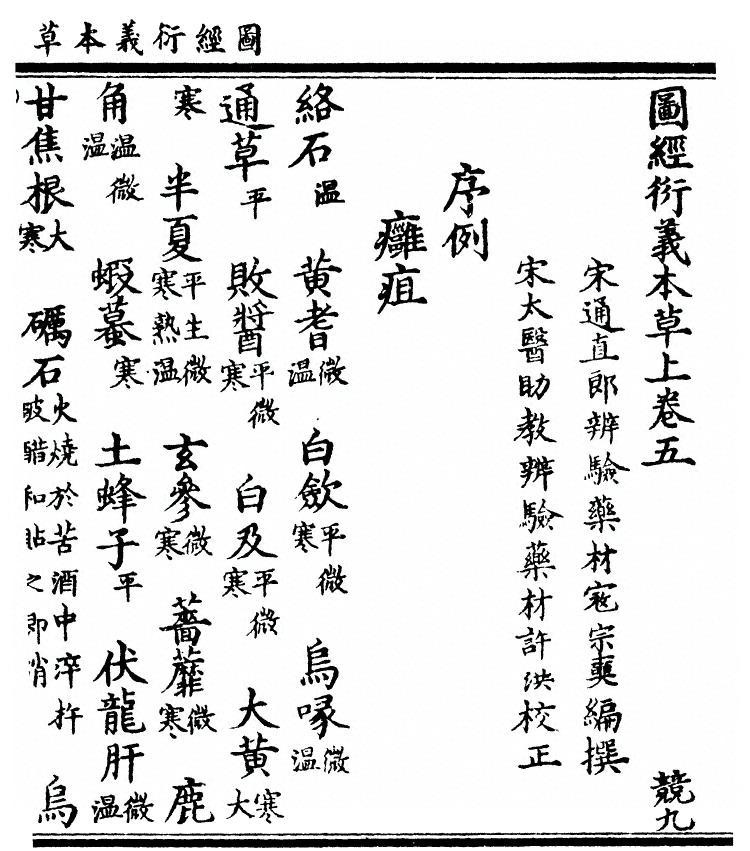 圖經衍義本草
圖經衍義本草上卷五　競九
宋通直郎辨驗藥材寇宗奭編撰
宋太醫助教辨驗藥材許洪校正
序例
癰疽
絡石溫　黃耆微溫　白斂平微寒　烏喙微溫
通草平　敗醬平微寒　白及平微寒　大黃寒大
寒　半夏平生微寒熟溫　玄參微寒　薔蘼微寒　鹿
角溫微溫　蝦蟇寒　土蜂子平　伏龍肝微溫
甘焦根大寒　礪石火燒於苦酒中淬杵破醋和貼之即消　烏